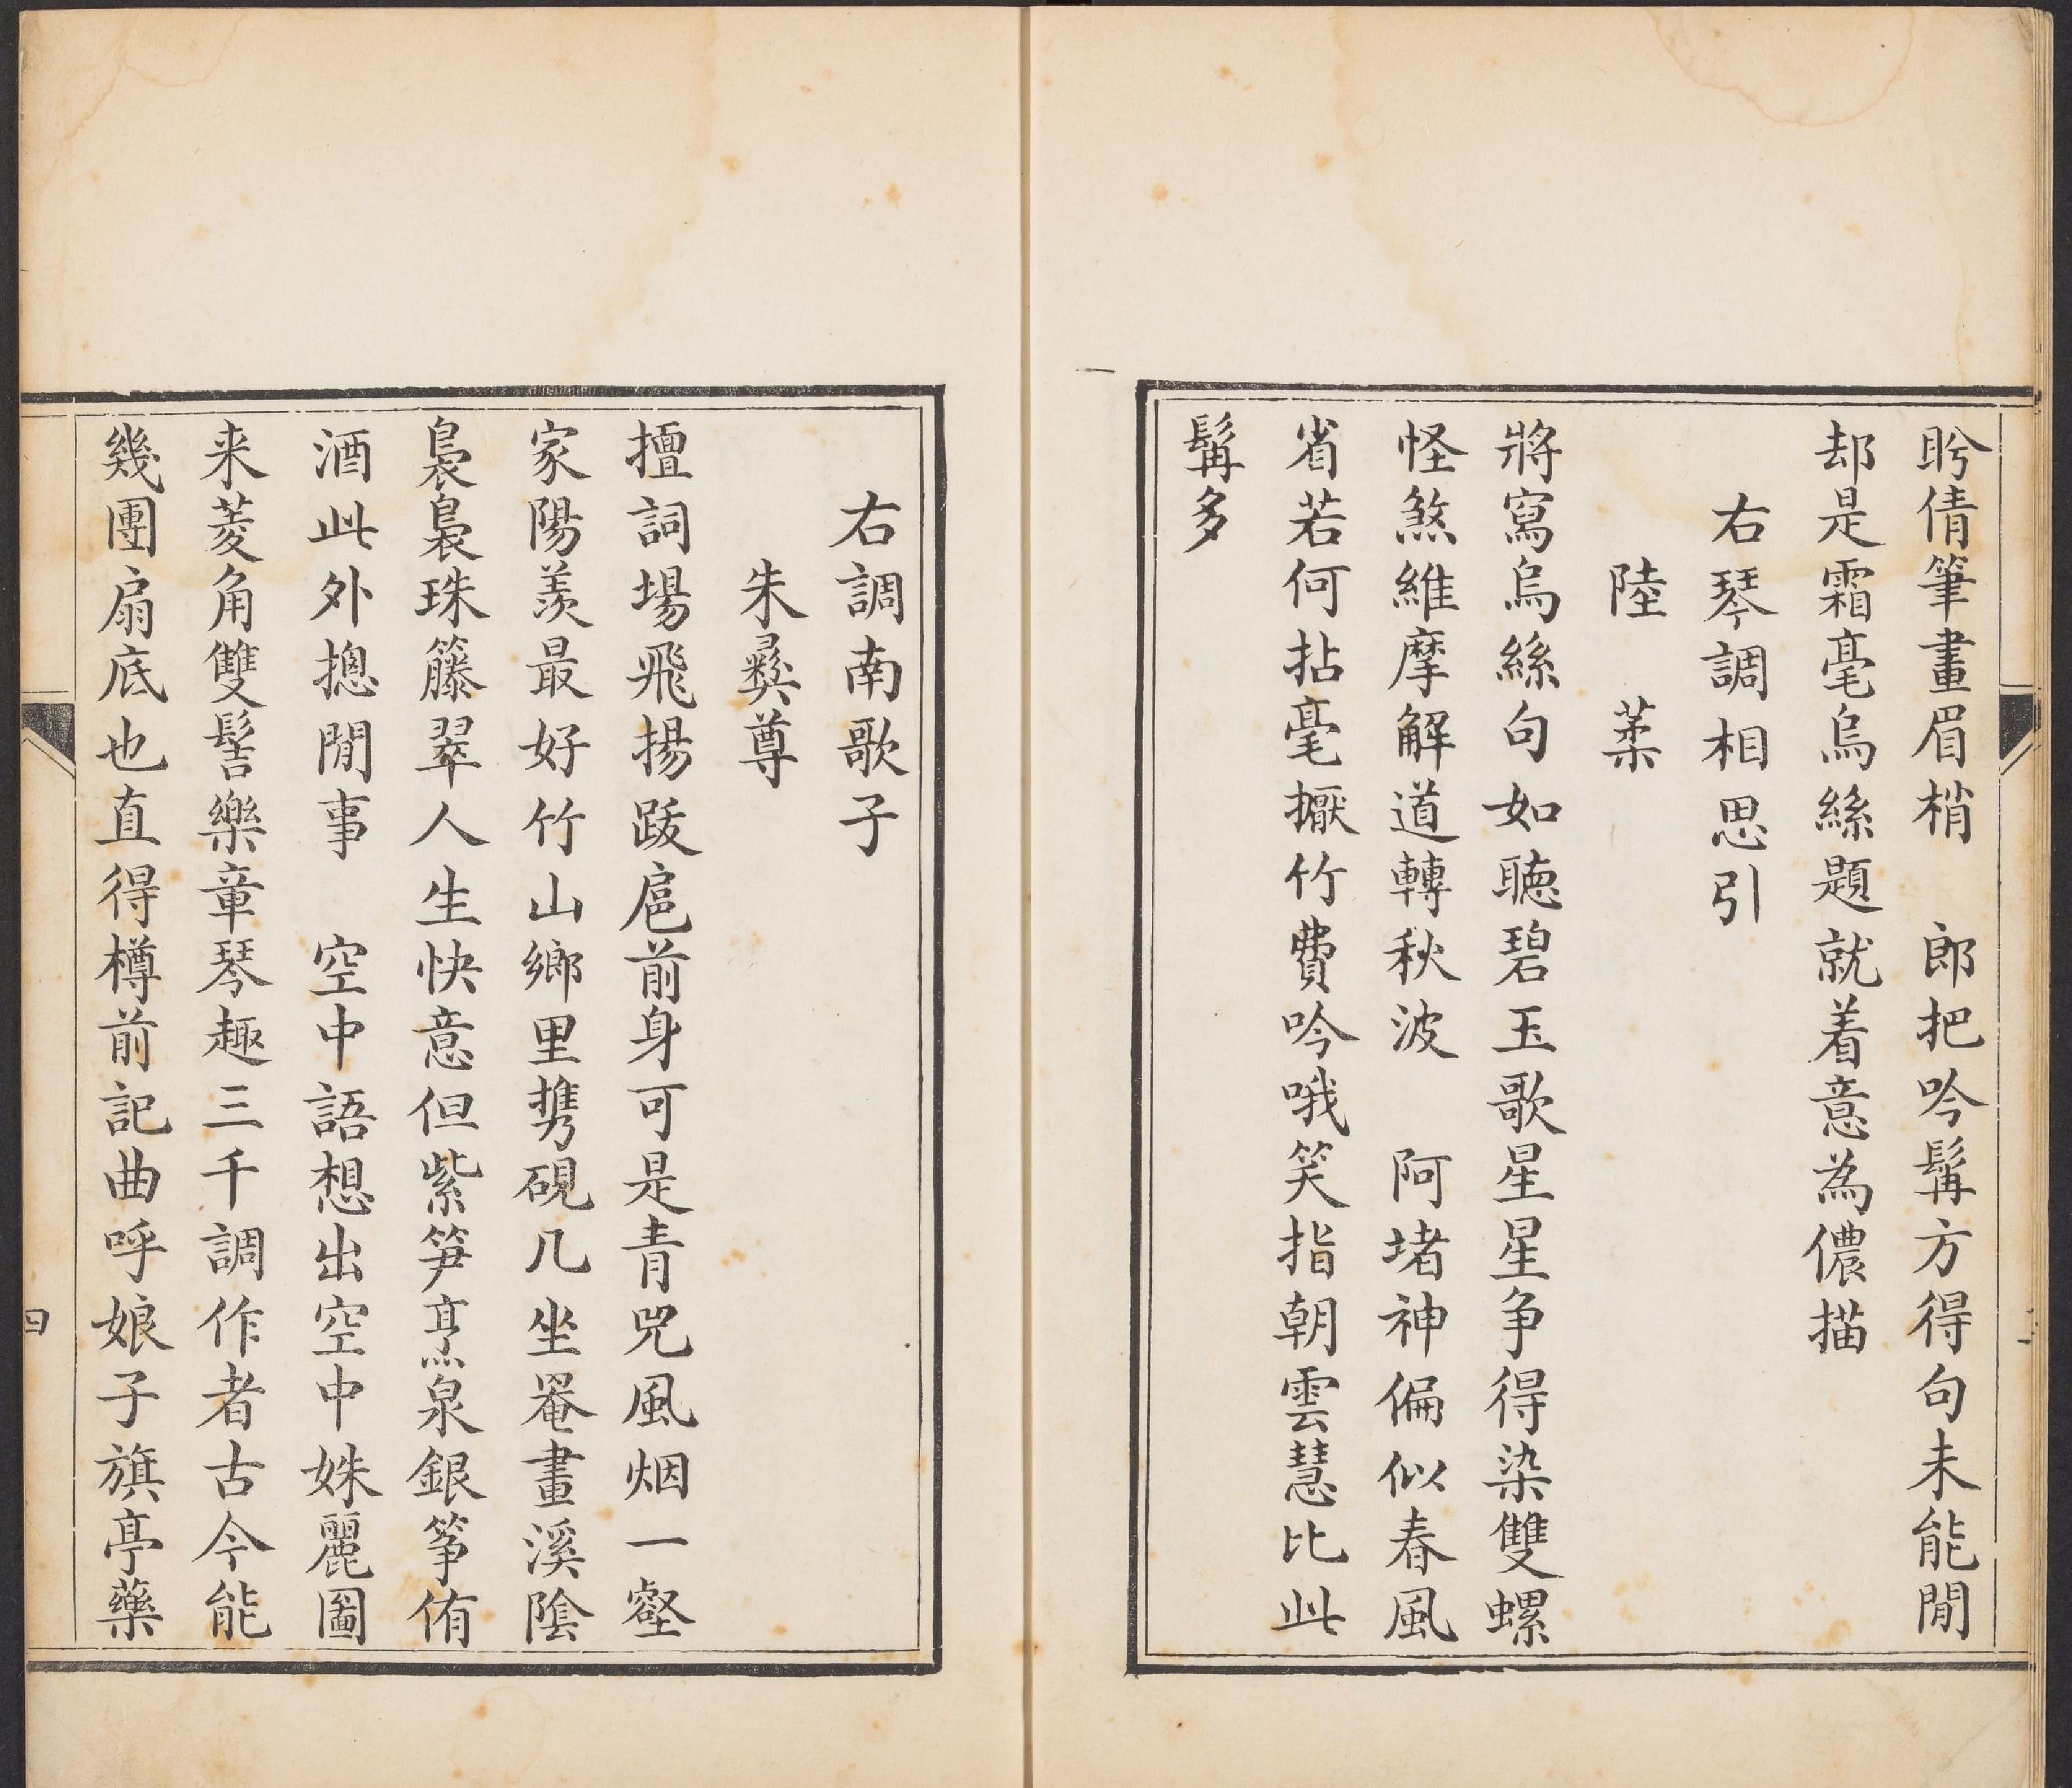 盻倩筆畫眉梢　郎把吟髯方得句未能閒
却是霜毫烏絲題就着意為儂描
右琴調相思引
陸　葇
將寫烏絲句如聽碧玉歌星星争得染雙螺
怪煞維摩解道轉秋波　阿堵神偏似春風
省若何拈毫擫竹費吟哦笑指朝雲慧比此
髯多
右調南歌子
朱彝尊
擅詞場飛揚跋扈前身可是青兕風烟一壑
家陽羡最好竹山鄉里携硯几坐罨畫溪陰
裊裊珠籐翠人生快意但紫笋烹泉銀筝侑
酒此外摠閒事　空中語想出空中姝麗圖
来菱角雙髻樂章琴趣三千調作者古今能
幾團扇底也直得樽前記曲呼娘子旗亭藥
四